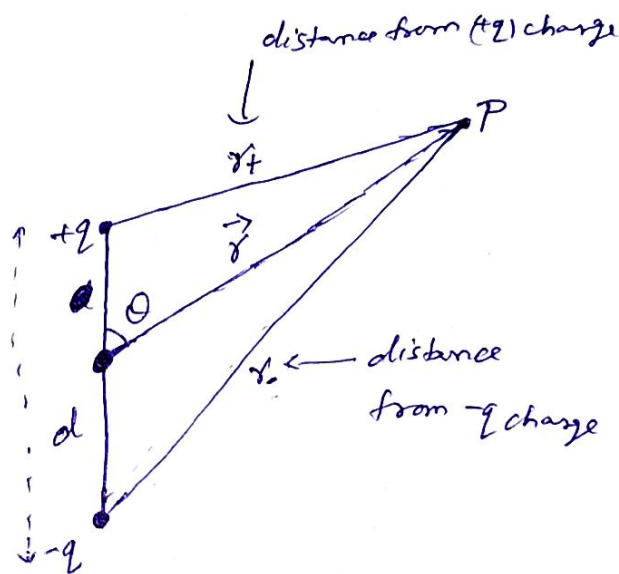 distance from (+q) charge
P
r+
+q
r⃗
θ
r- ← distance
from -q charge
d
-q